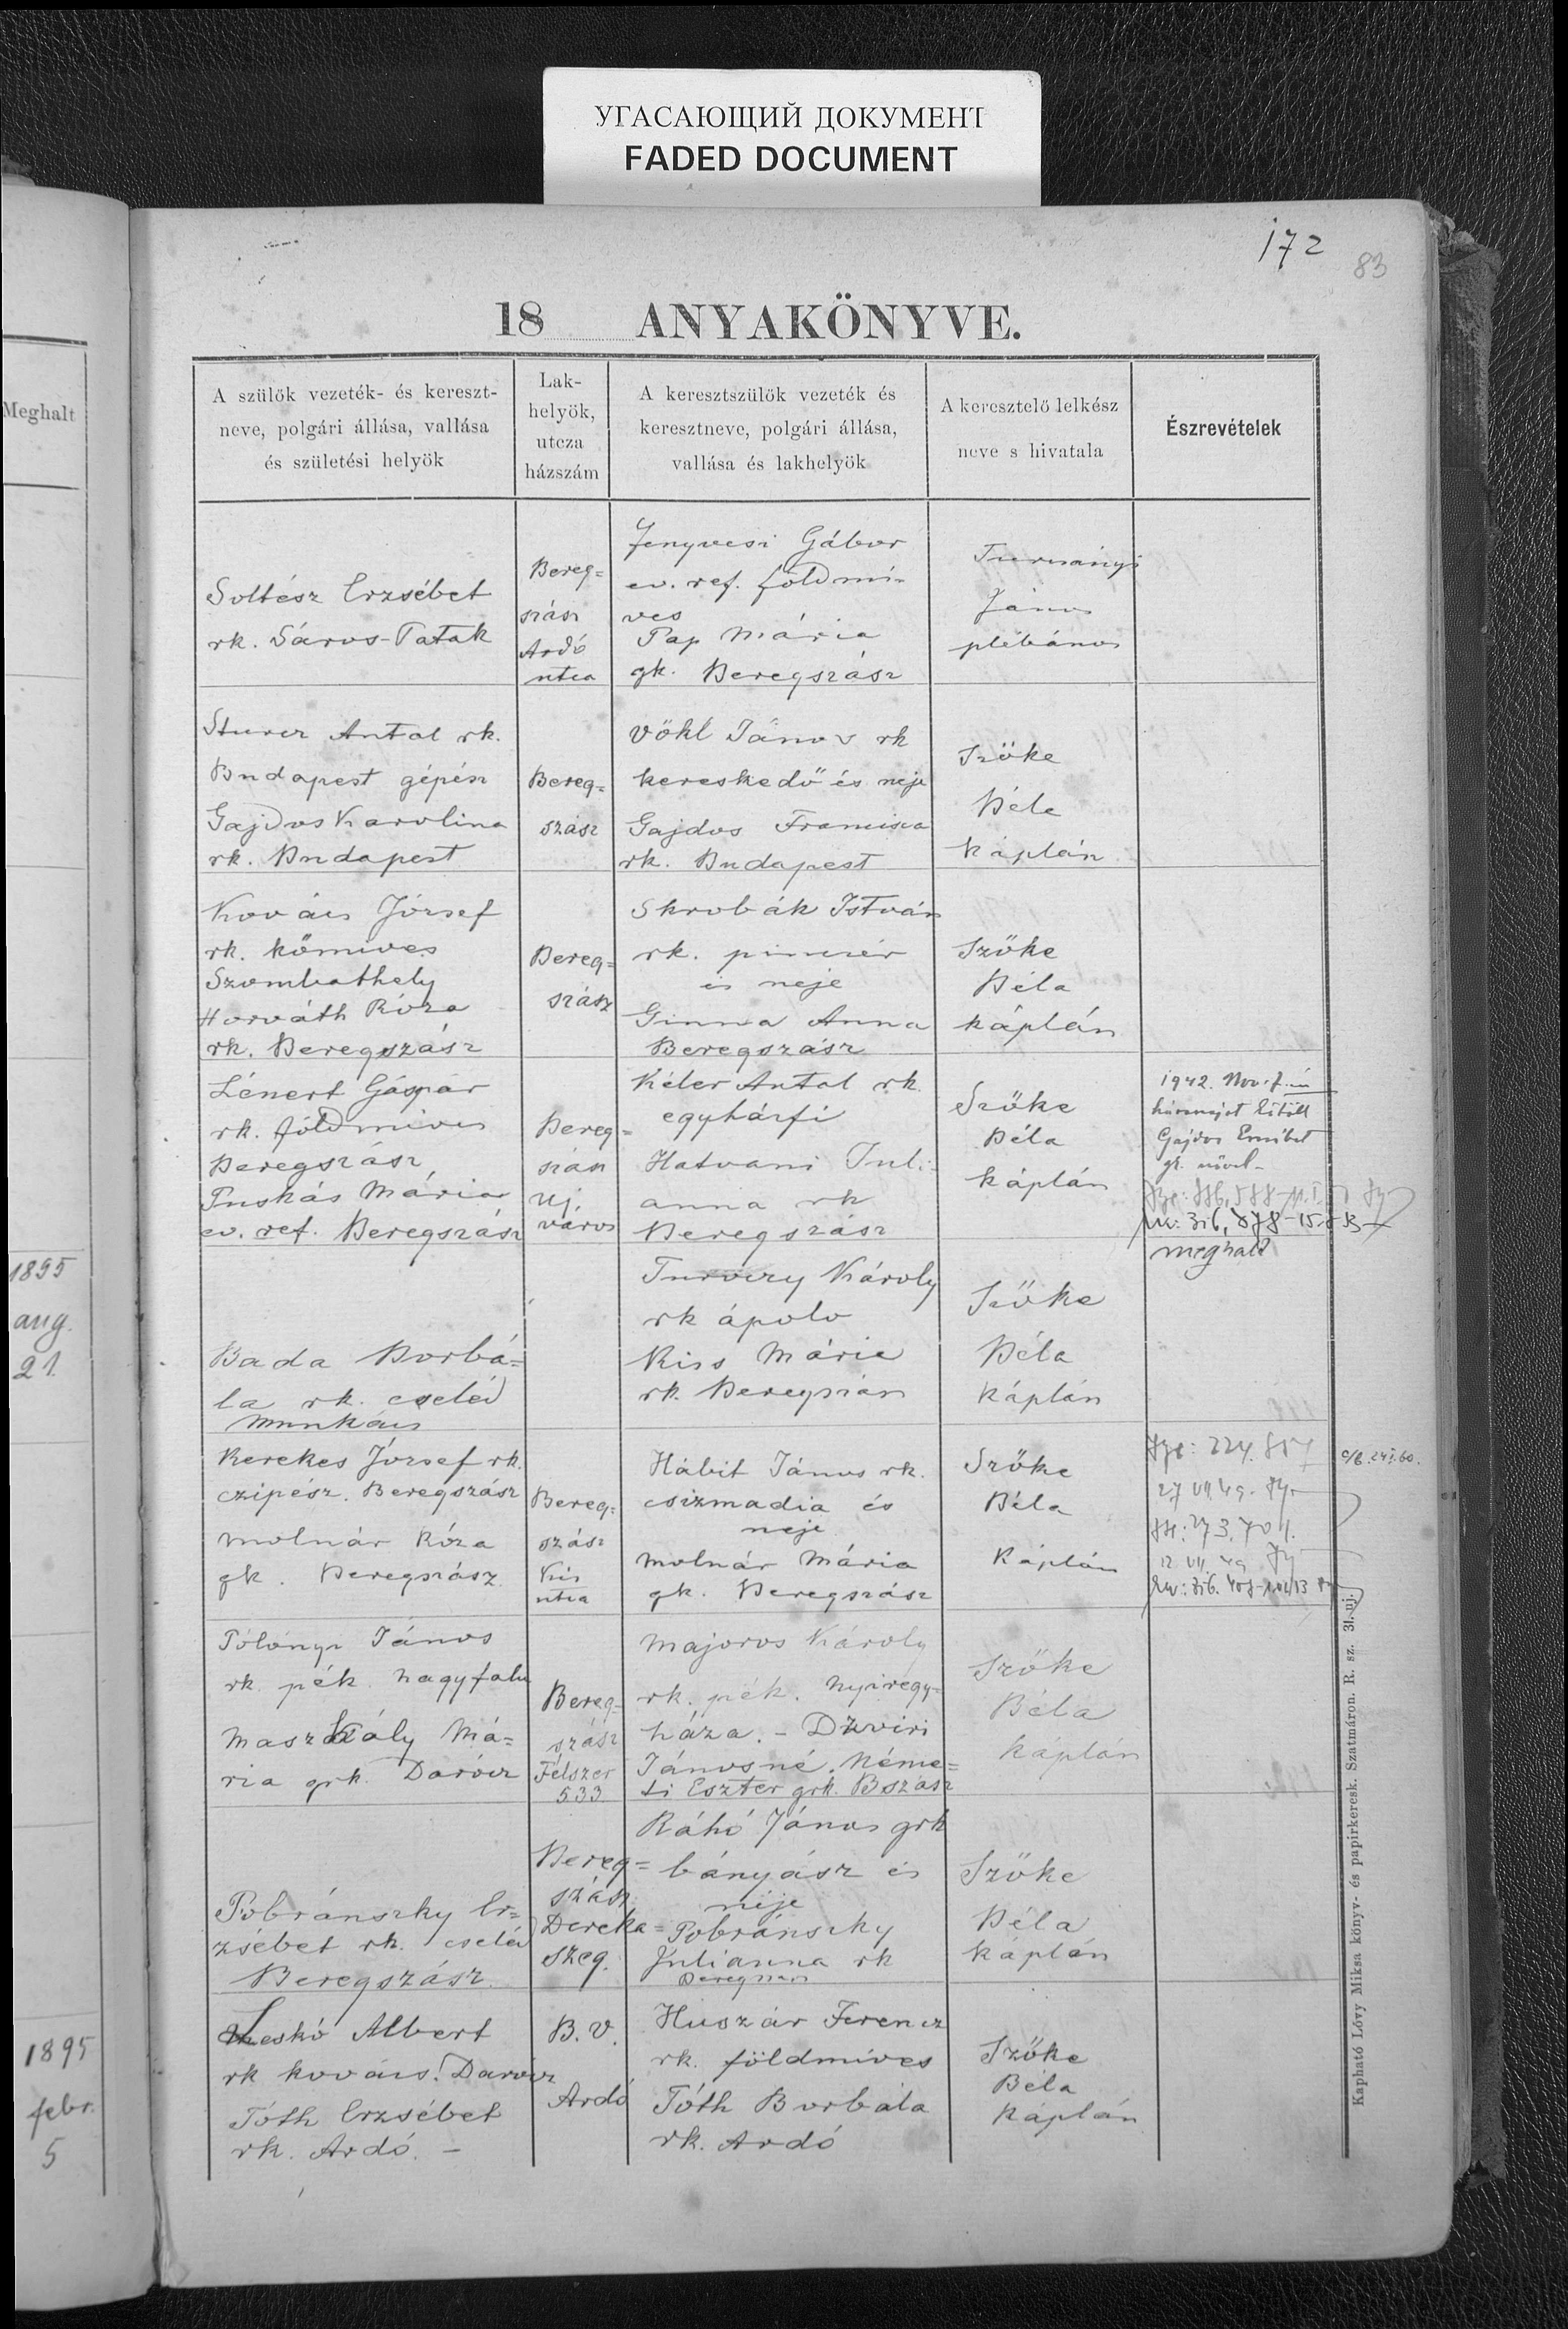 УГАСАЮЩИЙ ДОКУМЕНТ
FADED DOCUMENT
172
83
18 ANYAKÖNYVE.
Meghalt
A szülők vezeték- és kereszt-
neve, polgári állása, vallása
és születési helyök
Lak-
helyök,
utcza
házszám
A keresztszülők vezeték és
keresztneve, polgári állása,
vallása és lakhelyök
A keresztelő lelkész
neve s hivatala
Észrevételek
Soltész Erzsébet
rk. Sáros-Patak
Bereg=
szász
Ardó
utca
Fenyvesi Gábor
ev. ref. földmi-
ves
Pap Mária
gk. Beregszász
János
plébános
Sturer Antal rk.
Budapest gépész
Gajdos Karolina
rk. Budapest
Bereg=
szász
Vökl János rk
kereskedő és neje
Gajdos Francisca
rk. Budapest
Szőke
Béla
káplán
Kovács József
rk. kőmives
Szombathely
Horváth Róza
rk. Beregszász
Bereg=
szász
Skrobák István
rk. pinczér
és neje
Ginna Anna
Beregszász
Szőke
Béla
káplán
Lénert Gáspár
rk. földmives
Beregszász,
Puskás Mária
ev. ref. Beregszász
Bereg=
szász
Uj
város
Kéler Antal rk.
egyházfi
Hatvani Juli-
anna rk
Beregszász
Szőke
Béla
káplán
1942. Nov. 7.-én
Gajdos
meghalt
1895
aug.
21.
Bada Borbá=
la rk. cseléd
Munkács
Turóczy Károly
rk ápoló
Kiss Mária
rk. Beregszász
Szőke
Béla
káplán
Kerekes József rk.
czipész. Beregszász
Molnár Róza
gk. Beregszász
Bereg=
szász
Kis
utca
Hábit János rk.
csizmadia és
neje
Molnár Mária
gk. Beregszász
Szőke
Béla
Káplán
Pólónyi János
rk. pék. Nagyfalu
Maszály Má=
ria grk. Darócz
Bereg=
szász
Félszer
533.
Majoros Károly
rk. pék. Nyiregy=
háza. - Dzviri
Jánosné. Néme=
ti Eszter grk. Bszász
Szőke
Béla
káplán
Pobránszky Er=
zsébet rk. cseléd
Beregszász.
Bereg=
szász
Dereka=
szeg.
Ráhó János grk
bányász és
neje
Pobránszky
Julianna rk
Beregszász
Szőke
Béla
káplán
1895
febr.
5
Leskó Albert
rk kovács. Darócz
Tóth Erzsébet
rk. Ardó. -
B. V.
Ardó
Huszár Ferencz
rk. földmives
Tóth Borbála
rk. Ardó
Szőke
Béla
káplán
Kapható Lővy Miksa könyv- és papirkeresk. Szatmáron. R. sz. 31. uj.